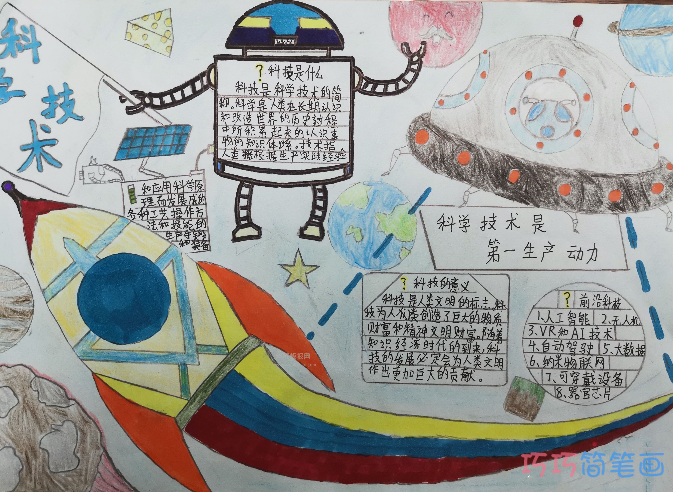 科学
技术
?科技是什么
科技是科学技术的简
称,科学是人类在长期认识
和改造世界的历史过程
中所积累起来的认识事
物的知识体系。技术指
人类根据生产实践经验
和应用科学原
理而发展成的
各种工艺操作方
法和技能的
科学技术是
第一生产动力
?科技的意义
科技是人类文明的标志。科
技为人类创造了巨大的物质
财富和精神文明财富。随着
知识经济时代的到来,科
技的发展必将会为人类文明
作出更加巨大的贡献。
?前沿科技
1.人工智能 2.无人机
3.VR和AI技术
4.自动驾驶 5.大数据
6.纳米物联网
7.可穿戴设备
8.器官芯片
巧巧简笔画